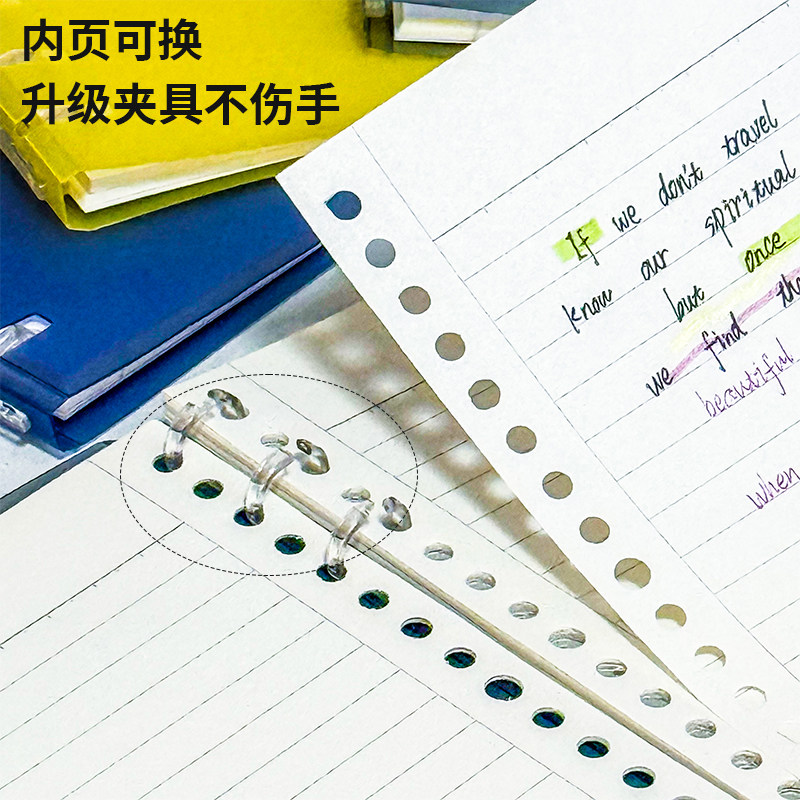 内页可换
升级夹具不伤手
If we don't travel
know our spiritual
but once
we find
beautiful
when